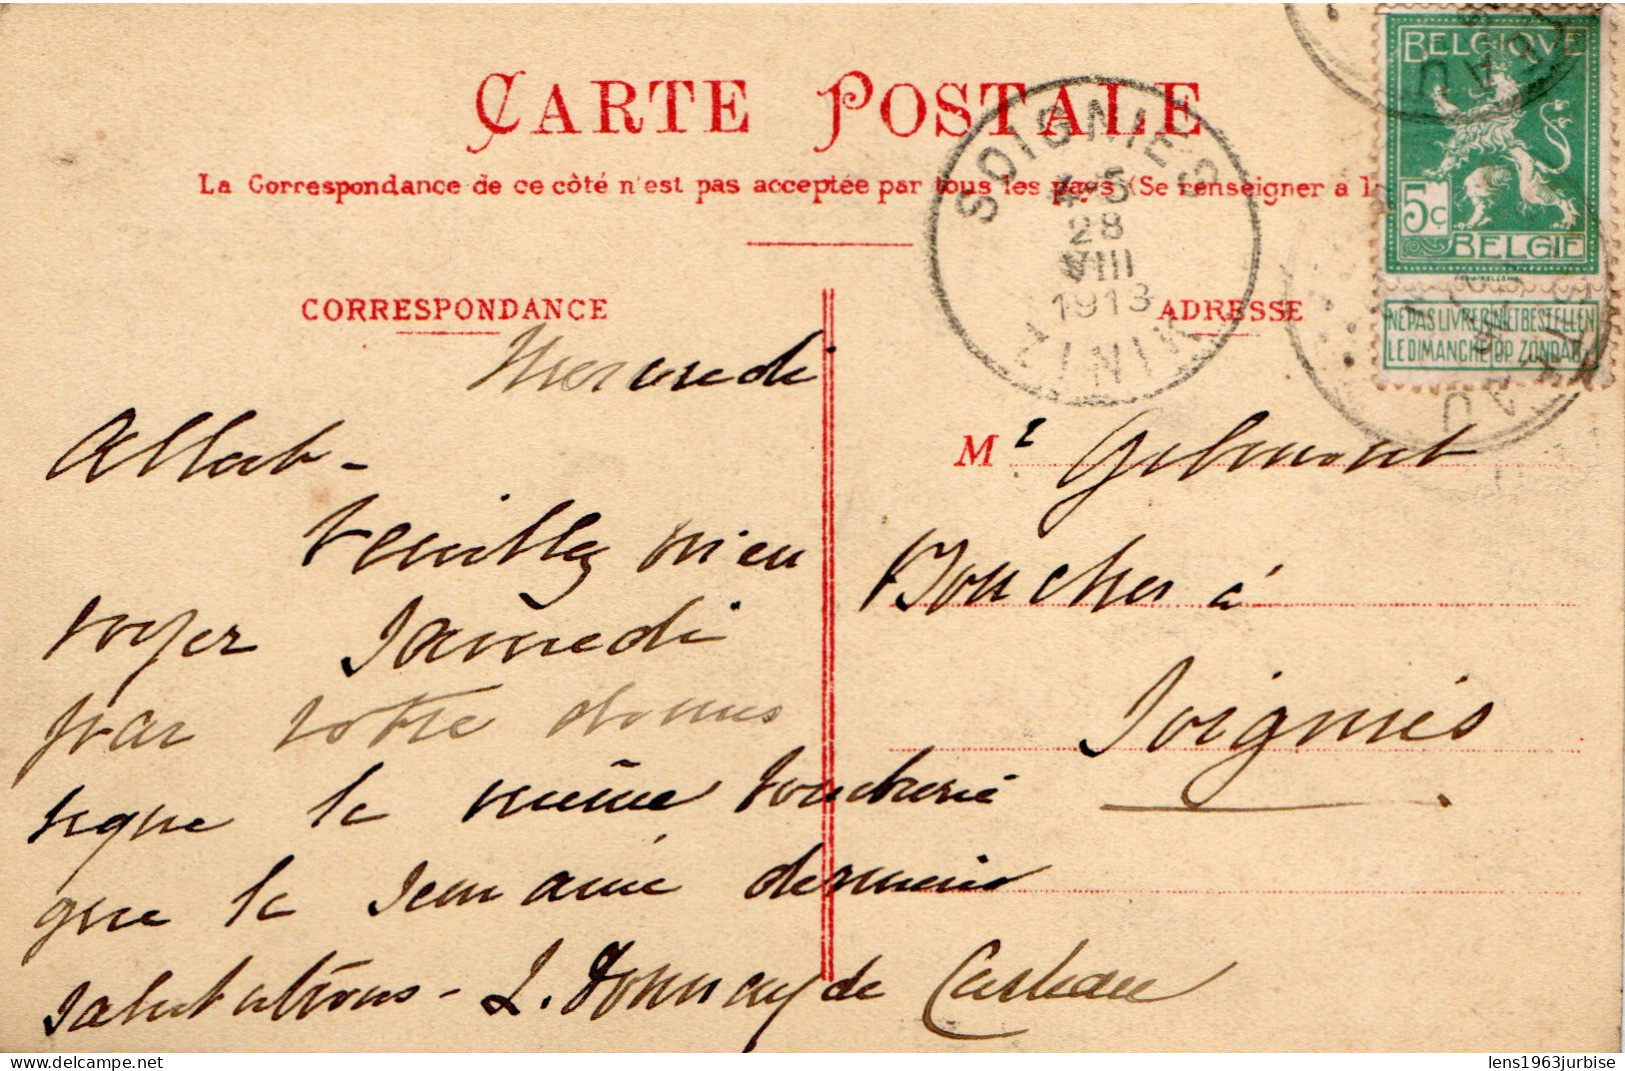 CARTE POSTALE
La Correspondance de ce côté n'est pas acceptée par tous les pays (Se renseigner à la
CORRESPONDANCE
ADRESSE
SOIGNIES
4-5
28
VIII
1913
ZINIK
BELGIQUE
5c
BELGIE
NE PAS LIVRER NIET BESTELLEN
LE DIMANCHE OP ZONDAG
Mercredi
veuillez
voyer Samedi
par votre domes
tique la même boucherie
que la Semaine dernière
Salutations - L. Donnay de Casteau
Mr
Boucher à
Soignies
lens1963jurbise